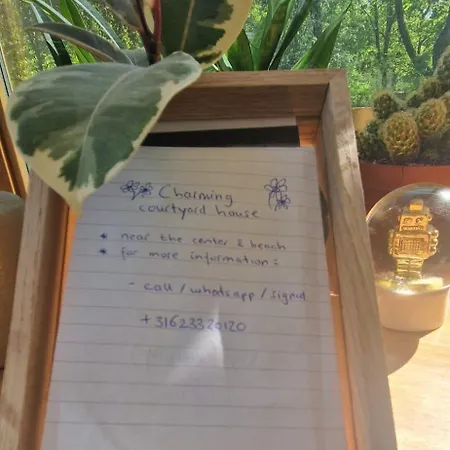 Charming
courtyard house
* near the center & beach
* for more information:
- call / whatsapp / signal
+31623320120